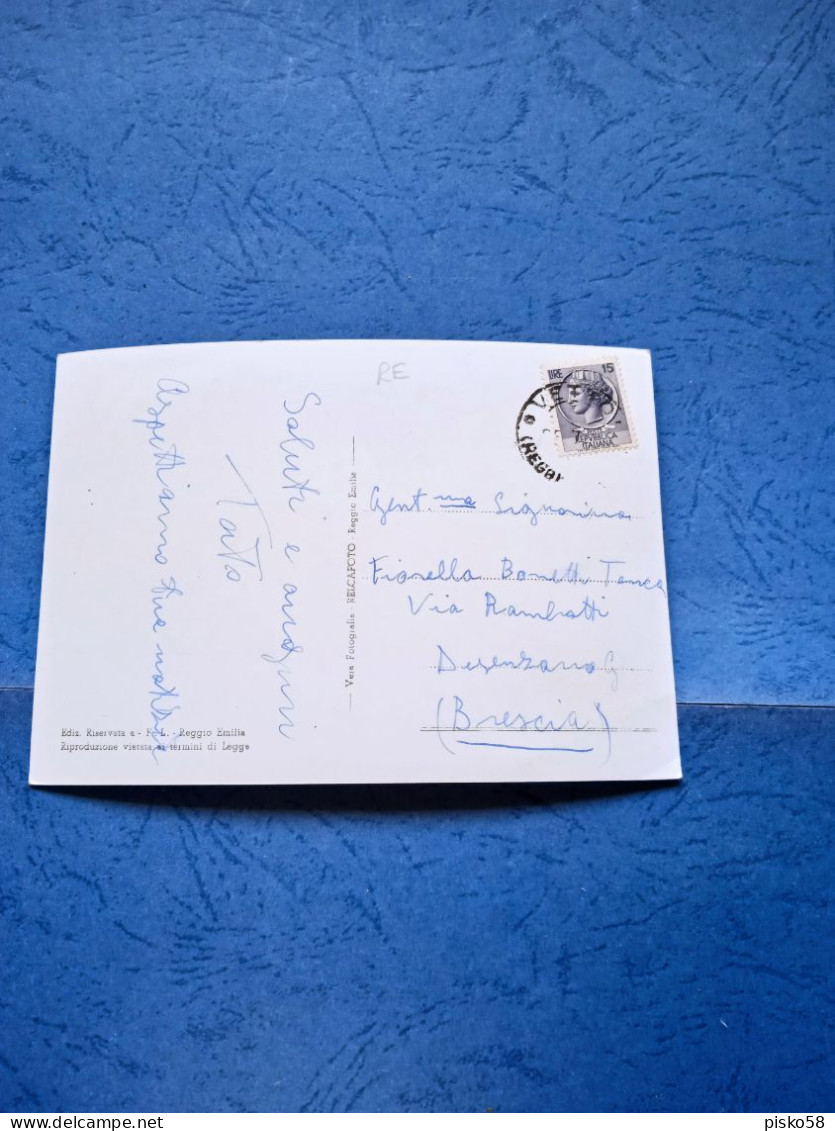 RE
LIRE 15
ITALIANA
(REGGI
Saluti e auguri
Tato
Aspettiamo tue notizie
Vera Fotografia - RESCAFOTO - Reggio Emilia
Gent.ma Signorina
Fiorella Bonetti
Via Rambotti
Desenzano G
(Brescia)
Ediz. Riservata a - F. L. - Reggio Emilia
Riproduzione vietata ai termini di Legge
delcampe.net
pisko58